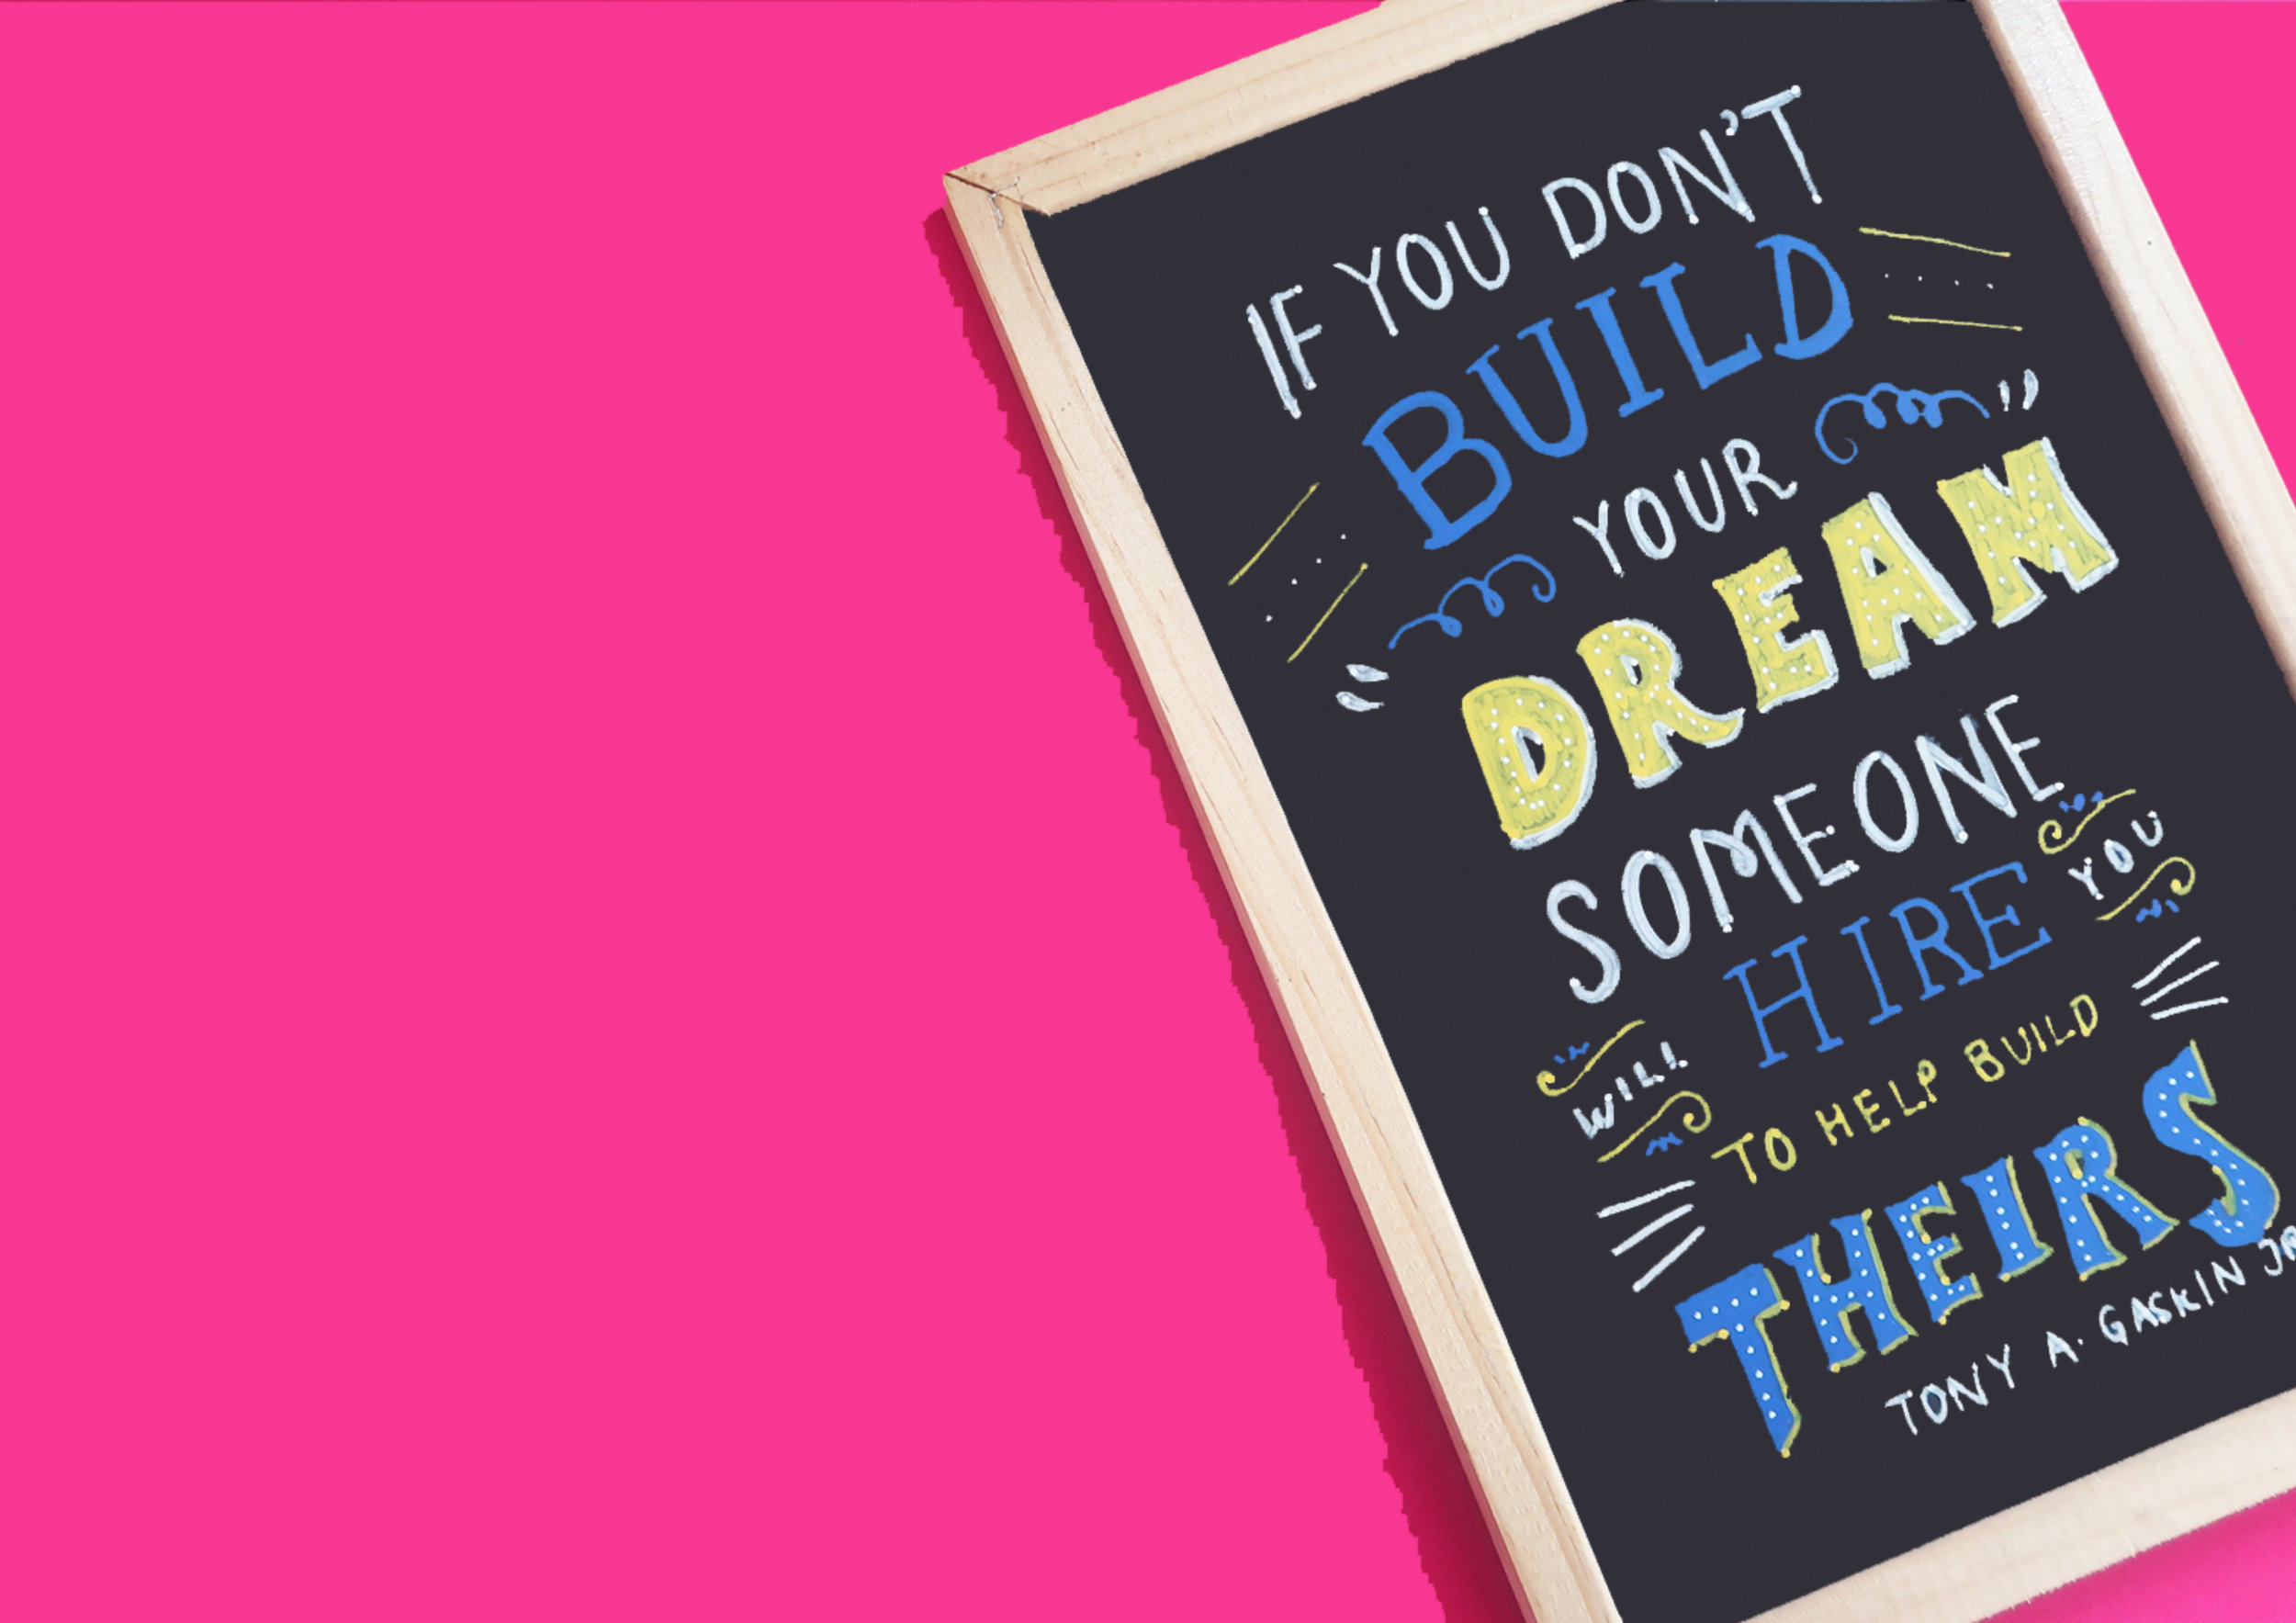 IF YOU DON'T
BUILD
YOUR
DREAM
SOMEONE
WILL HIRE YOU
TO HELP BUILD
THEIRS
TONY A. GASKIN JR